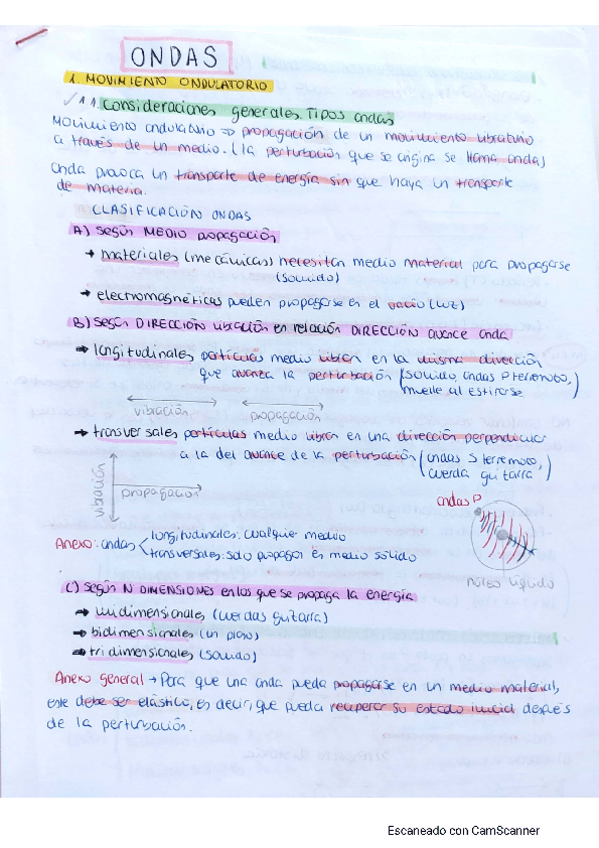 ONDAS
1. MOVIMIENTO ONDULATORIO
1.1. Consideraciones generales. Tipos ondas
Movimiento ondulatorio ⇒ propagación de un movimiento vibratorio
a través de un medio. (la perturbación que se origina se llama onda)
Onda provoca un transporte de energía sin que haya un transporte
de materia.
CLASIFICACIÓN ONDAS
A) Según MEDIO propagación
→ materiales (mecánicas) necesitan medio material para propagarse
(sonido)
→ electromagnéticas pueden propagarse en el vacío (luz)
B) Según DIRECCIÓN vibración en relación DIRECCIÓN avance onda
→ longitudinales partículas medio vibran en la misma dirección
que avanza la perturbación (sonido, ondas P terremoto,
muelle al estirarse)
vibración propagación
→ transversales partículas medio vibran en una dirección perpendicular
a la del avance de la perturbación (ondas S terremoto,
cuerda guitarra)
vibración
propagación
ondas P
Anexo: ondas longitudinales: cualquier medio
transversales: solo propagar en medio sólido
núcleo líquido
C) Según N DIMENSIONES en las que se propaga la energía
→ unidimensionales (cuerdas guitarra)
→ bidimensionales (un plano)
→ tridimensionales (sonido)
Anexo general → Para que una onda pueda propagarse en un medio material,
este debe ser elástico, es decir, que pueda recuperar su estado inicial después
de la perturbación.
Escaneado con CamScanner